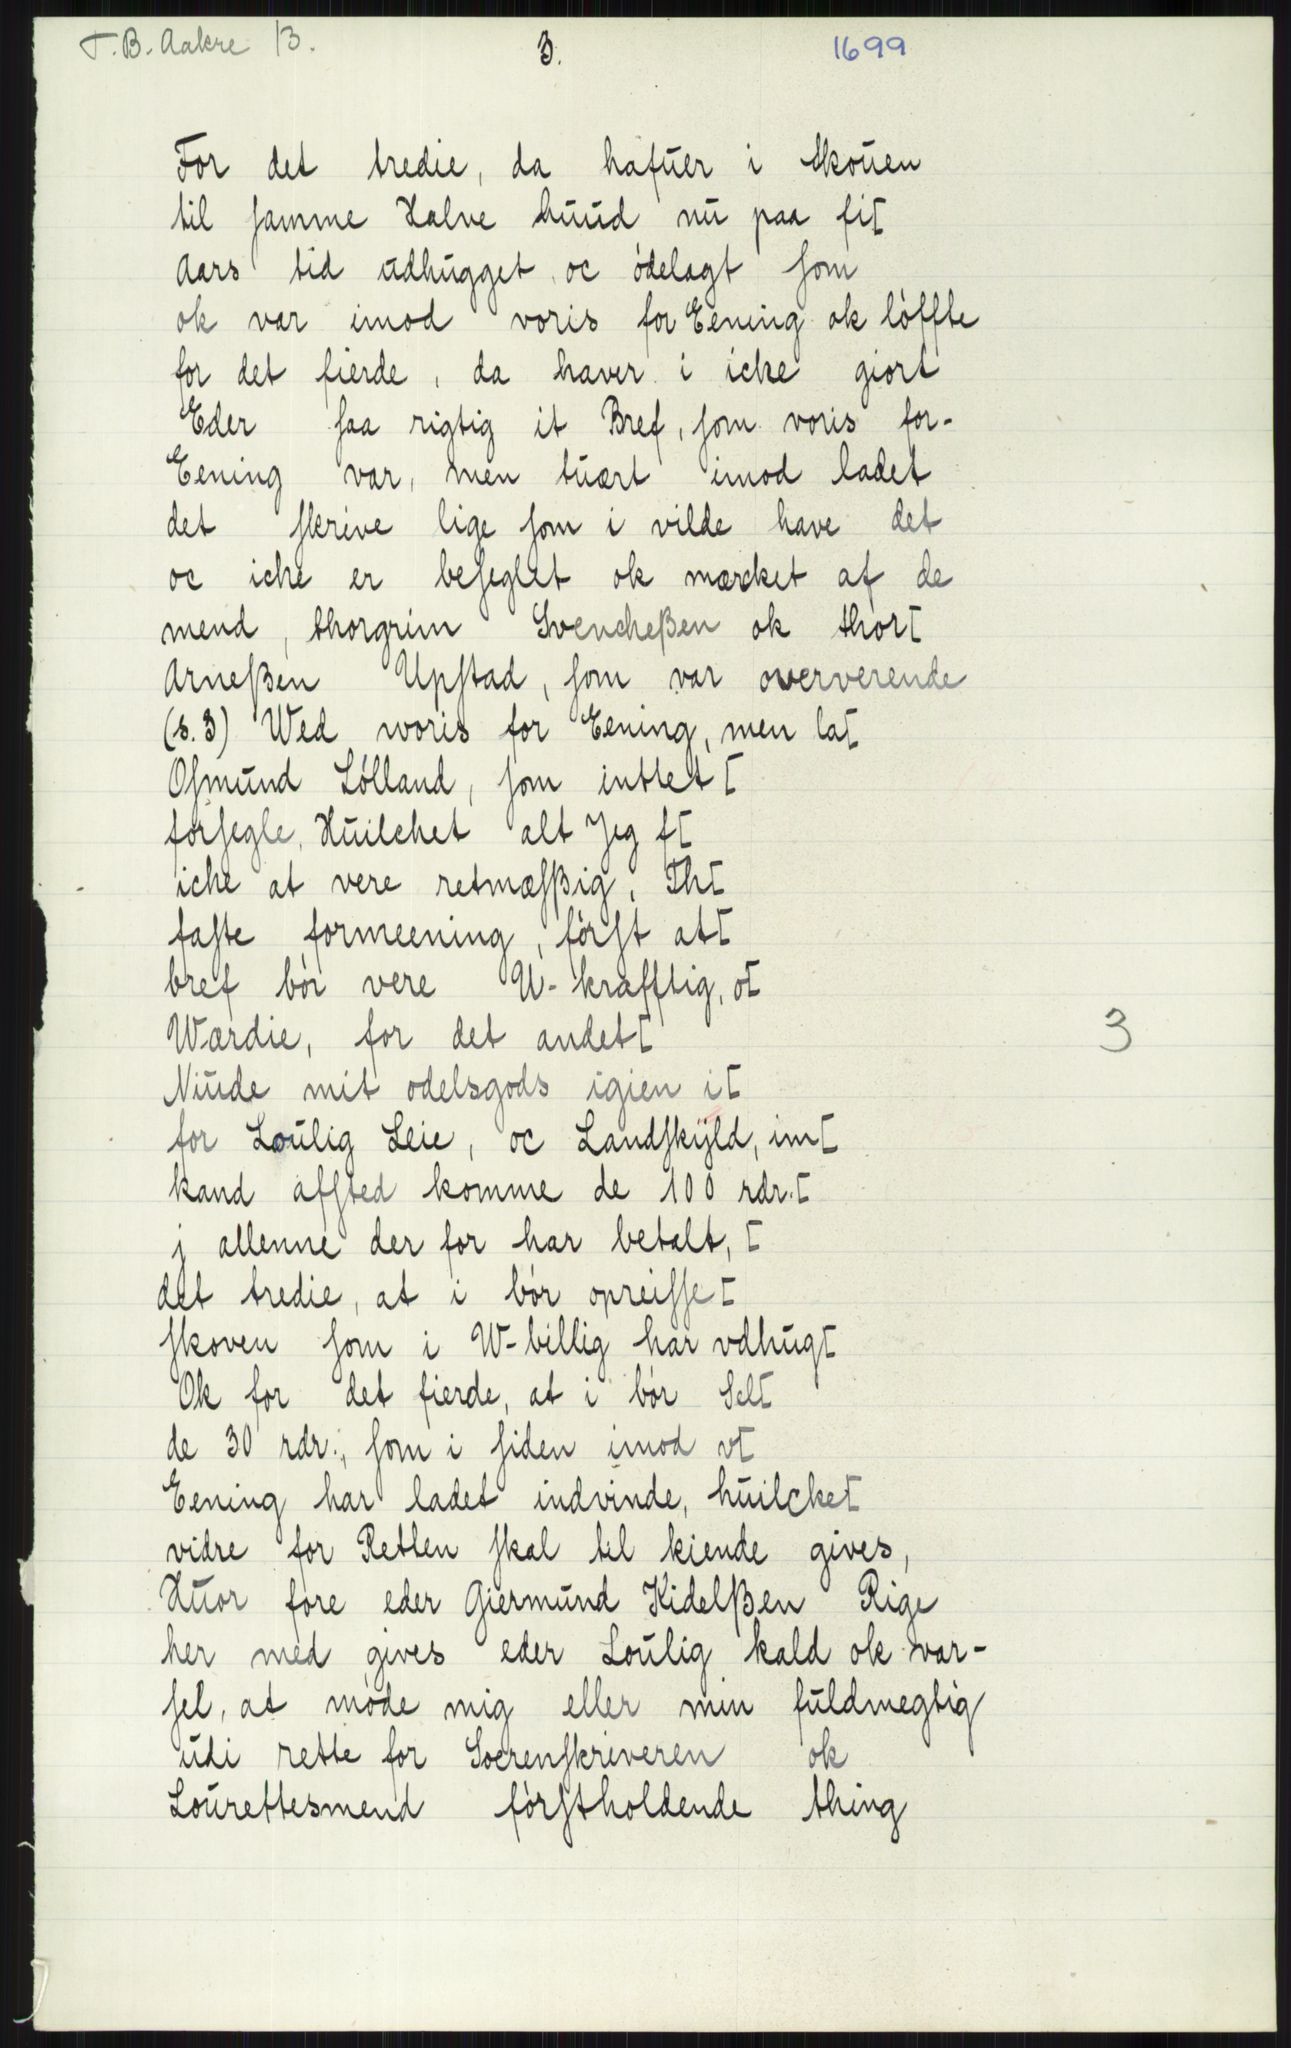 T. B. Aakre 13.
3.
1699
For det tredie, da hafuer i skouen
til samme Halve huud nu paa fi[
Aars tid udhugget oc ödelagt som
ok var imod voris for Eening ok löffte
for det fierde, da haver i icke giort
Eder saa rigtig it Bref, som voris for-
Eening var, men tuært imod ladet
det skrive lige som i vilde have det
oc icke er beseglet ok mærcket af de
mend, thorgrim Svencheßen ok thor[
Arneßen Upstad, som var oververende
(s. 3) Wed woris for Eening, men la[
Osmund Lölland, som inttet [
forsegle, Huilchet alt Jeg f[
iche at vere retmæsßig, Th[
faste formeening, först at[
bref bör vere U-krafftig, o[
Wærdie, for det andet [
Niude mit odelsgods igien i[
for Loulig Leie, oc Landskÿld, im[
kand affsted komme de 100 rdr. [
j allenne der for har betalt, [
det tredie, at i bör opreisse[
skoven som i W-billig har vdhug[
Ok for det fierde, at i bör Sel[
de 30 rdr., som i siden imod v[
Eening har ladet indvinde, huilcke[
vidre for Retten skal til kiende gives,
Huor fore eder Giermund Kidelßen Rige
her med gives eder Loulig kald ok var-
sel, at möde mig eller min fuldmegtig
udi rette for Soerenskriveren ok
Lourettesmend förstholdende thing
3